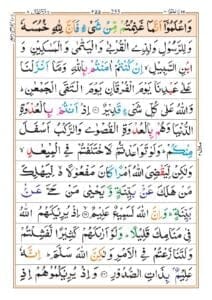 وَاعْلَمُوْٓا اَنَّمَا غَنِمْتُمْ مِّنْ شَیْءٍ فَاَنَّ لِلّٰهِ خُمُسَهٗ
وَلِلرَّسُوْلِ وَلِذِی الْقُرْبٰی وَالْیَتٰمٰی وَالْمَسٰكِیْنِ وَ
ابْنِ السَّبِیْلِ ۙ اِنْ كُنْتُمْ اٰمَنْتُمْ بِاللّٰهِ وَمَاۤ اَنْزَلْنَا
عَلٰی عَبْدِنَا یَوْمَ الْفُرْقَانِ یَوْمَ الْتَقَی الْجَمْعٰنِ ؕ
وَاللّٰهُ عَلٰی كُلِّ شَیْءٍ قَدِیْرٌ اِذْ اَنْتُمْ بِالْعُدْوَةِ
الدُّنْیَا وَهُمْ بِالْعُدْوَةِ الْقُصْوٰی وَالرَّكْبُ اَسْفَلَ
مِنْكُمْ ؕ وَلَوْ تَوَاعَدْتُّمْ لَاخْتَلَفْتُمْ فِی الْمِیْعٰدِ ۙ
وَلٰكِنْ لِّیَقْضِیَ اللّٰهُ اَمْرًا كَانَ مَفْعُوْلًا ۙ لِّیَهْلِكَ
مَنْ هَلَكَ عَنْۢ بَیِّنَةٍ وَّیَحْیٰی مَنْ حَیَّ عَنْۢ
بَیِّنَةٍ ؕ وَاِنَّ اللّٰهَ لَسَمِیْعٌ عَلِیْمٌ اِذْ یُرِیْكَهُمُ اللّٰهُ
فِیْ مَنَامِكَ قَلِیْلًا ؕ وَلَوْ اَرٰىكَهُمْ كَثِیْرًا لَّفَشِلْتُمْ
وَلَتَنَازَعْتُمْ فِی الْاَمْرِ وَلٰكِنَّ اللّٰهَ سَلَّمَ ؕ اِنَّهٗ
عَلِیْمٌۢ بِذَاتِ الصُّدُوْرِ وَاِذْ یُرِیْكُمُوْهُمْ اِذِ